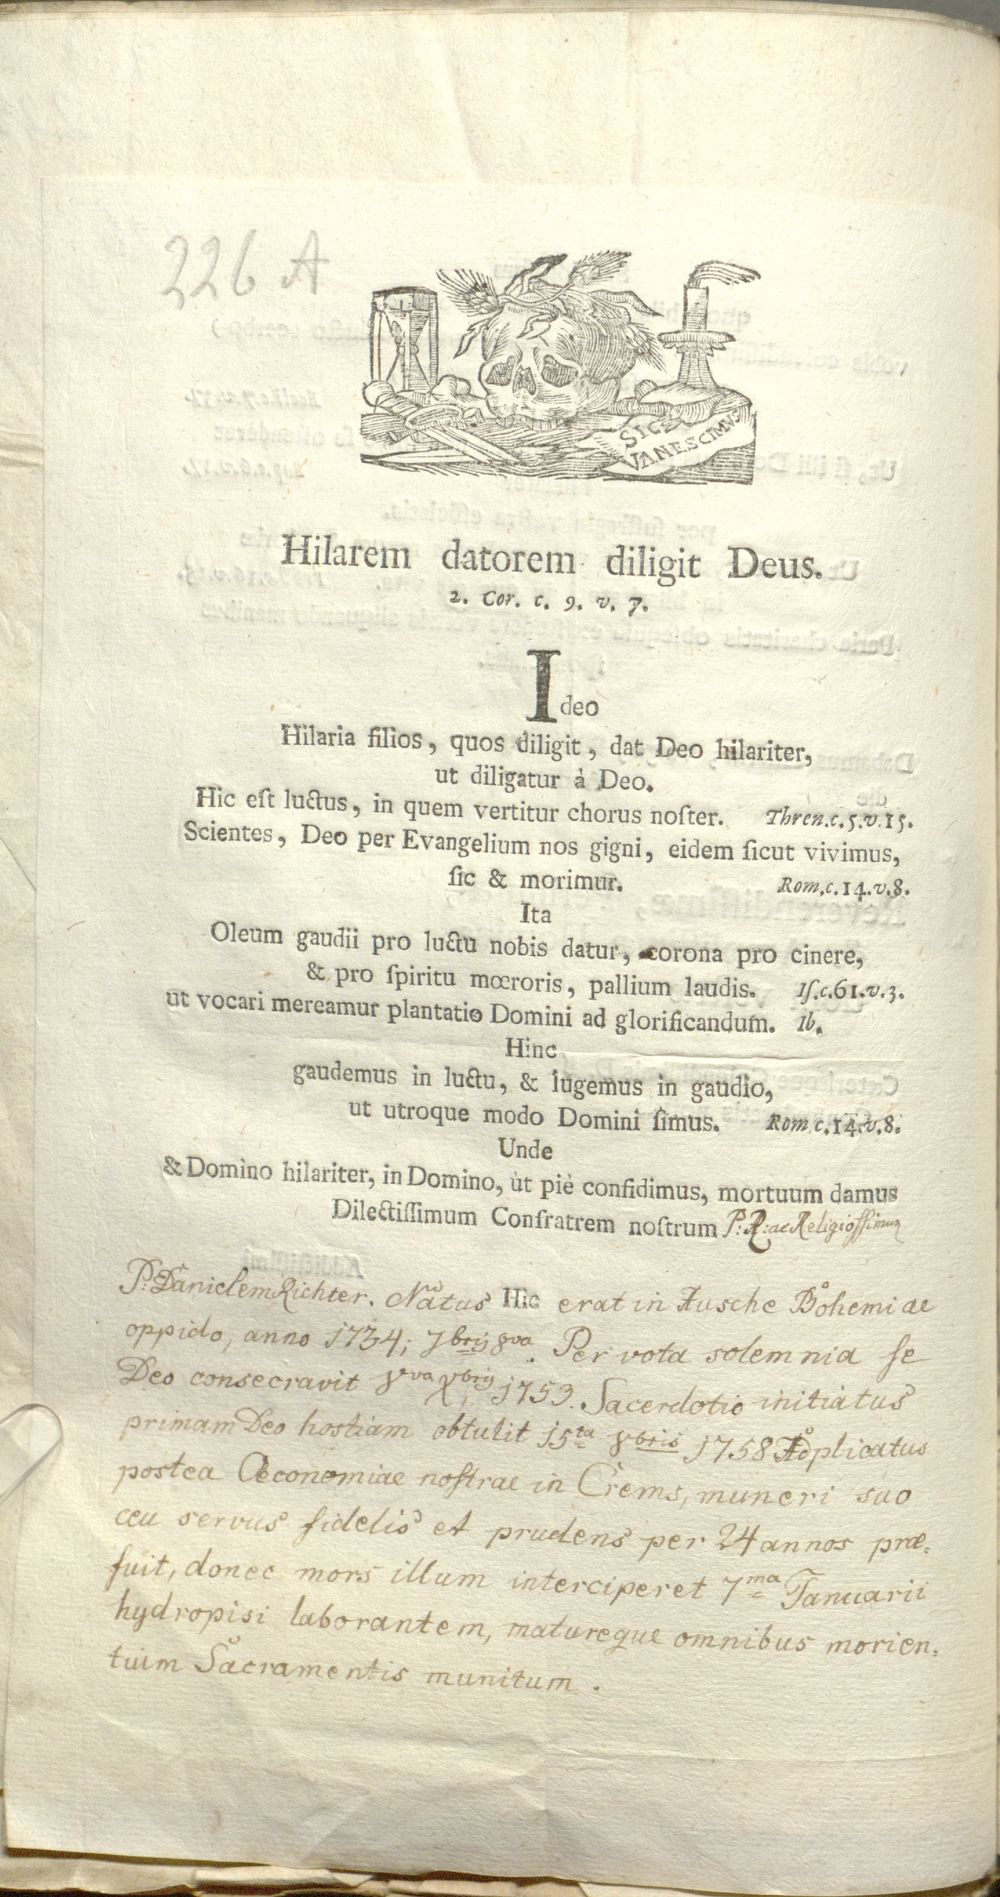 226 A
SIC
VANESCIMUS
Hilarem datorem diligit Deus.
2. Cor. c. 9. v. 7.
Ideo
Hilaria filios, quos diligit, dat Deo hilariter,
ut diligatur à Deo.
Hic eſt luctus, in quem vertitur chorus noſter. Thren.c.5.v.15.
Scientes, Deo per Evangelium nos gigni, eidem ſicut vivimus,
ſic & morimur. Rom.c.14.v.8.
Ita
Oleum gaudii pro luctu nobis datur, corona pro cinere,
& pro ſpiritu mœroris, pallium laudis. Iſ.c.61.v.3.
ut vocari mereamur plantatio Domini ad glorificandum. Ib.
Hinc
gaudemus in luctu, & lugemus in gaudio,
ut utroque modo Domini ſimus. Rom c.14.v.8.
Unde
& Domino hilariter, in Domino, ùt piè confidimus, mortuum damus
Dilectiſſimum Confratrem noſtrum P: R: ac Religioſſimum
P. Danielem Richter. Natus Hic erat in Ausche Bohemiae
oppido, anno 1734; 7bris 8va. Per vota solemnia ſe
Deo consecravit 8va Xbris 1753. Sacerdotio initiatus
primam Deo hostiam obtulit 15ta 8bris 1758 Adplicatus
postea Œconomiae noſtrae in Crems, muneri suo
ceu servus fidelis et prudens per 24 annos præ:
fuit, donec mors illum interciperet 7ma Januarii
hydropisi laborantem, matureque omnibus morien:
tium Sacramentis munitum.